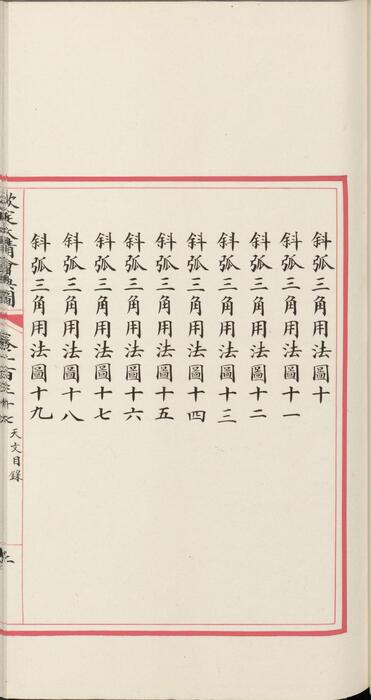 斜弧三角用法圖十
斜弧三角用法圖十一
斜弧三角用法圖十二
斜弧三角用法圖十三
斜弧三角用法圖十四
斜弧三角用法圖十五
斜弧三角用法圖十六
斜弧三角用法圖十七
斜弧三角用法圖十八
斜弧三角用法圖十九
欽定大清會典圖
天文目錄